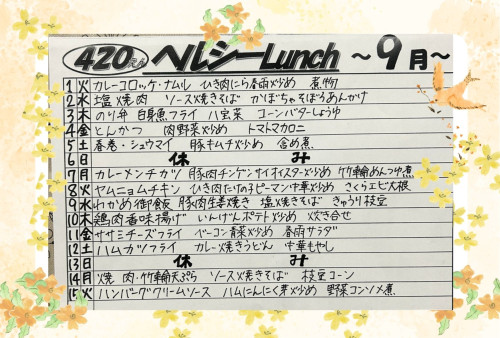 420えん ヘルシーLunch ～9月～
1 火 カレーコロッケ・ナムル ひき肉にら春雨炒め 煮物
2 水 塩焼肉 ソース焼きそば かぼちゃそぼろあんかけ
3 木 のり弁 白身魚フライ 八宝菜 コーンバターしょうゆ
4 金 とんかつ 肉野菜炒め トマトマカロニ
5 土 春巻・シュウマイ 豚キムチ炒め 含め煮
6 日 休み
7 月 カレーメンチカツ 豚肉チンゲンサイオイスター炒め 竹輪めんつゆ煮
8 火 ヤムニョムチキン ひき肉たけのこピーマン中華炒め さくらエビ大根
9 水 わかめ御飯 豚肉生姜焼き 塩焼きそば きゅうり枝豆
10 木 鶏肉香味揚げ いんげんポテト炒め 炊き合せ
11 金 ササミチーズフライ ベーコン青菜炒め 春雨サラダ
12 土 ハムカツフライ カレー焼きうどん 中華もやし
13 日 休み
14 月 焼肉・竹輪天ぷら ソース焼きそば 枝豆コーン
15 火 ハンバーグクリームソース ハムにんにく芽炒め 野菜コンソメ煮